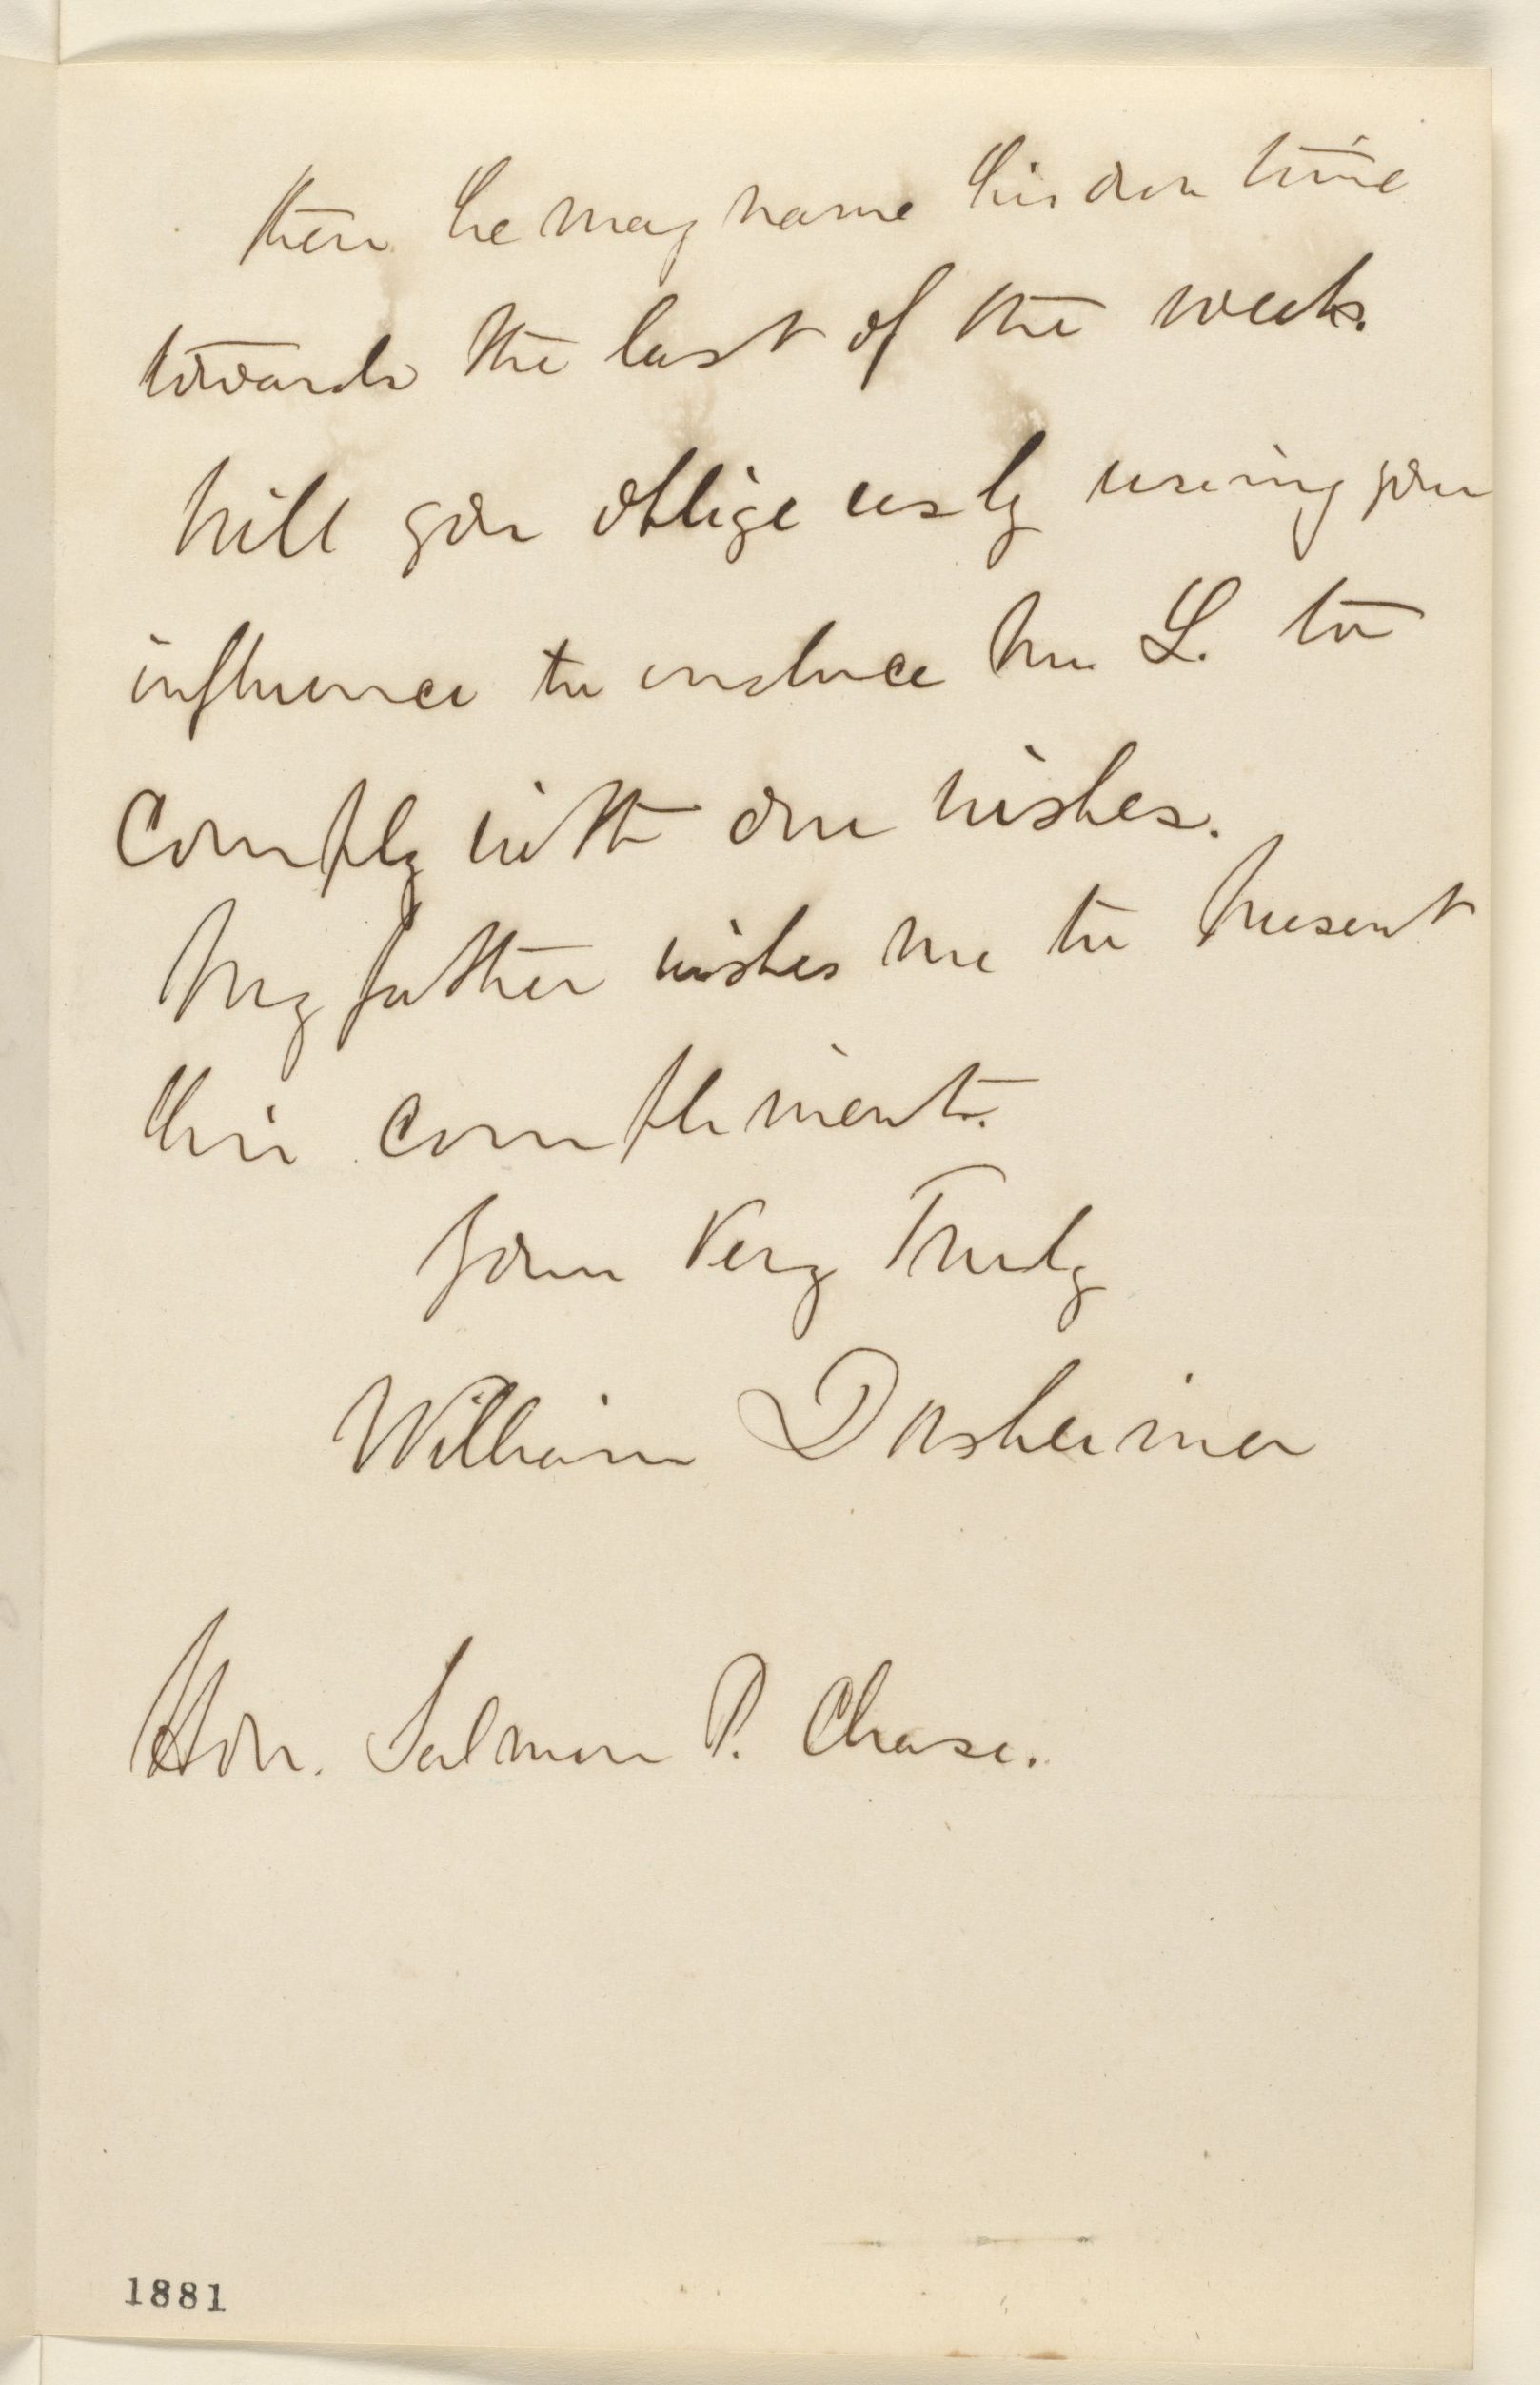 then he may name his own time
towards the last of the week.
Will you oblige us by using your
influence to induce Mr. L. to
comply with our wishes.
My father wishes me to present
his compliments.
Yours Very Truly
William Dorsheimer
Hon. Salmon P. Chase.
1881